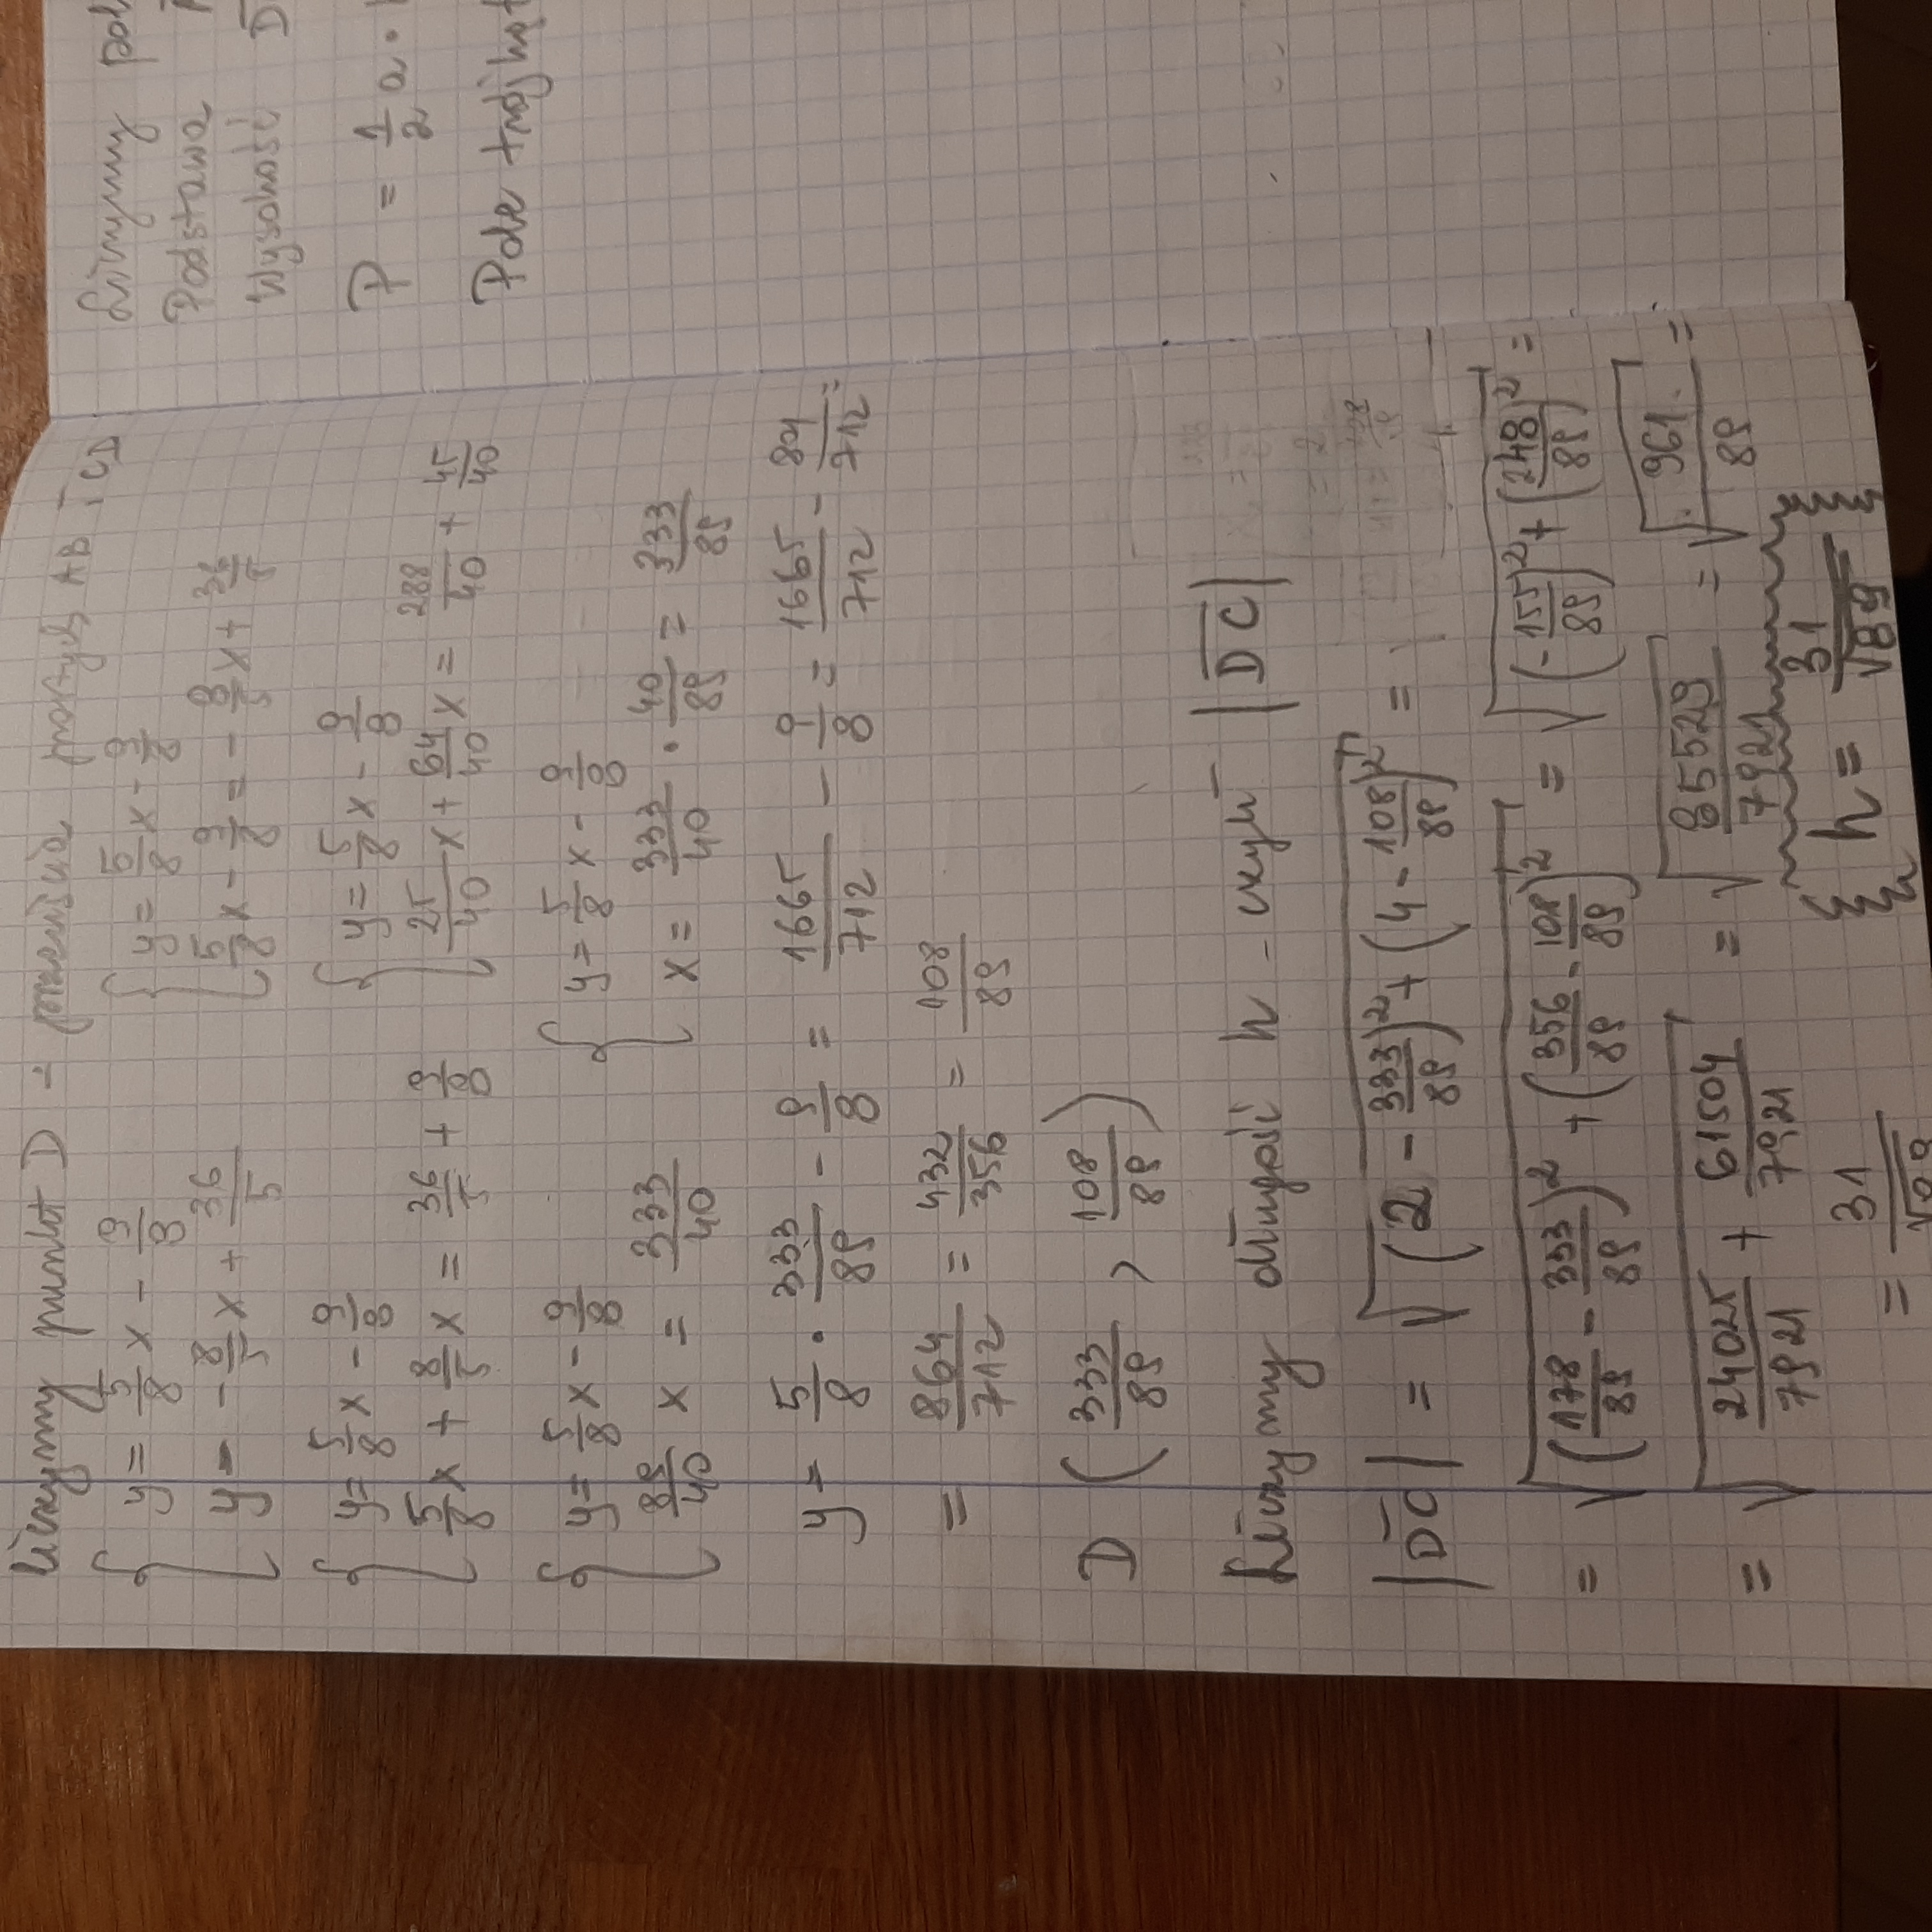 Liczymy punkt D - przecięcia prostych AB i CD
{ y = 5/8 x - 9/8 { y = 5/8 x - 9/8
y = - 8/5 x + 36/5 5/8 x - 9/8 = - 8/5 x + 36/5
{ y = 5/8 x - 9/8 { y = 5/8 x - 9/8
5/8 x + 8/5 x = 36/5 + 9/8 25/40 x + 64/40 x = 288/40 + 45/40
{ y = 5/8 x - 9/8 { y = 5/8 x - 9/8
89/40 x = 333/40 x = 333/40 · 40/89 = 333/89
y = 5/8 · 333/89 - 9/8 = 1665/712 - 9/8 = 1665/712 - 801/712 =
= 864/712 = 432/356 = 108/89
D ( 333/89 , 108/89 )
Liczymy długość h - czyli |DC|
|DC| = √( (2 - 333/89)² + (4 - 108/89)² ) =
= √( (178/89 - 333/89)² + (356/89 - 108/89)² ) = √( (-155/89)² + (248/89)² ) =
= √( 24025/7921 + 61504/7921 ) = √( 85529/7921 ) = √( 961/89 ) =
= 31/√89 h = 31/√89
Liczymy
Podstawa
Wysokość
P = 1/2 a ·
Pole